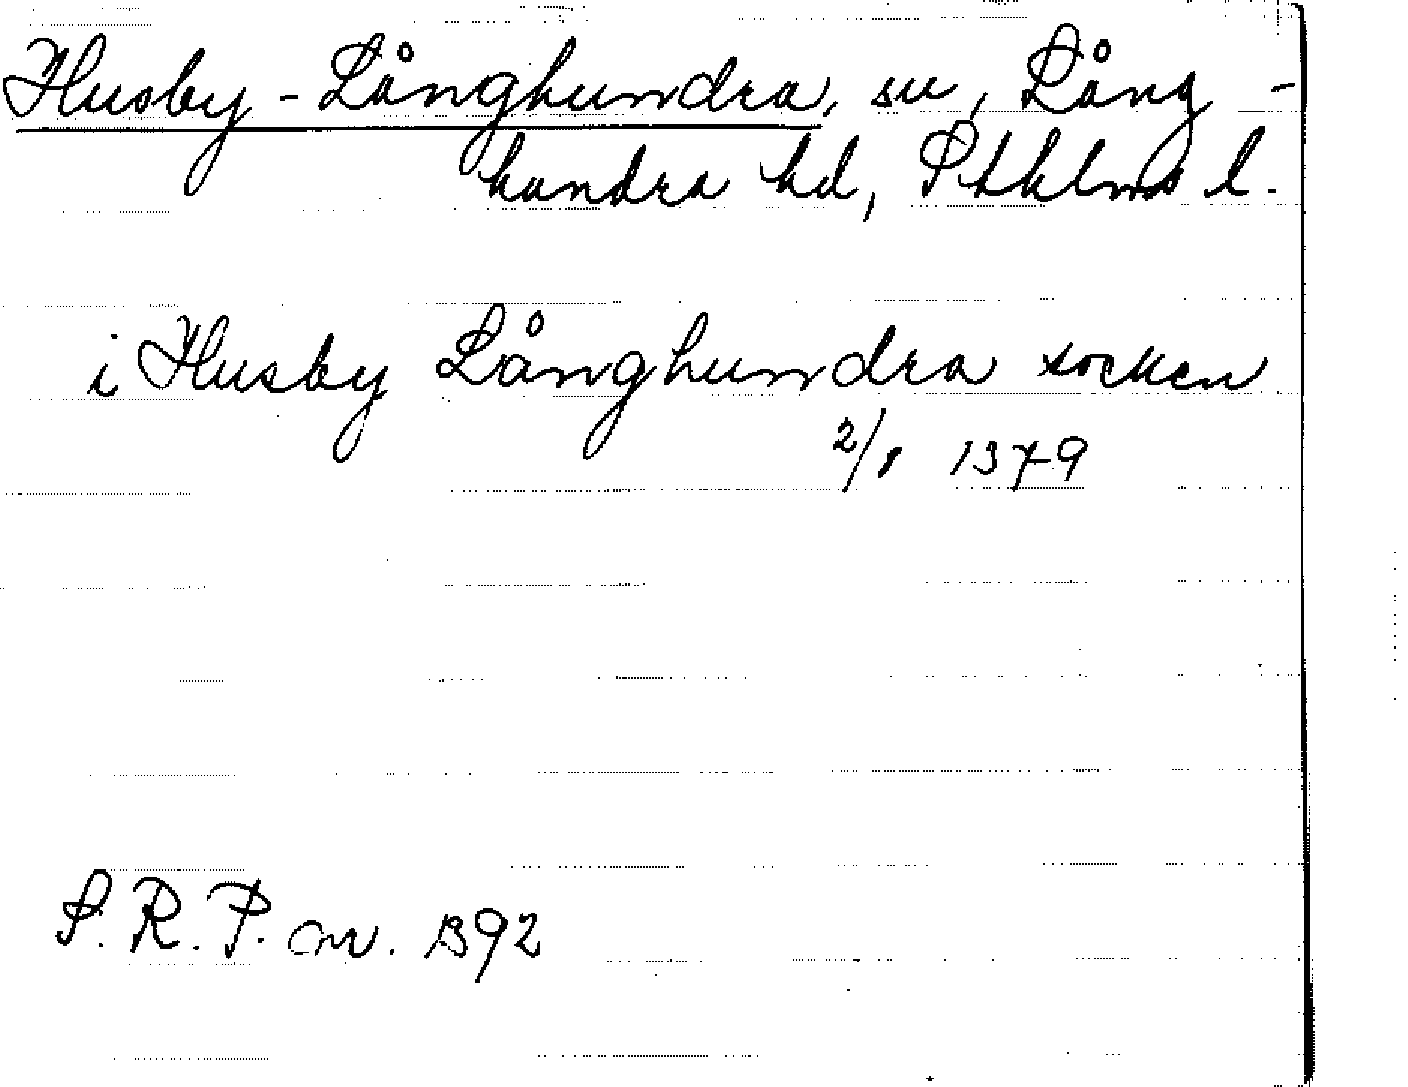 Husby-Långhundra, sn, Lång-
hundra hd, Sthlms l.
i Husby Långhundra socken
2/8 1379
S.R.P. nr. 1392